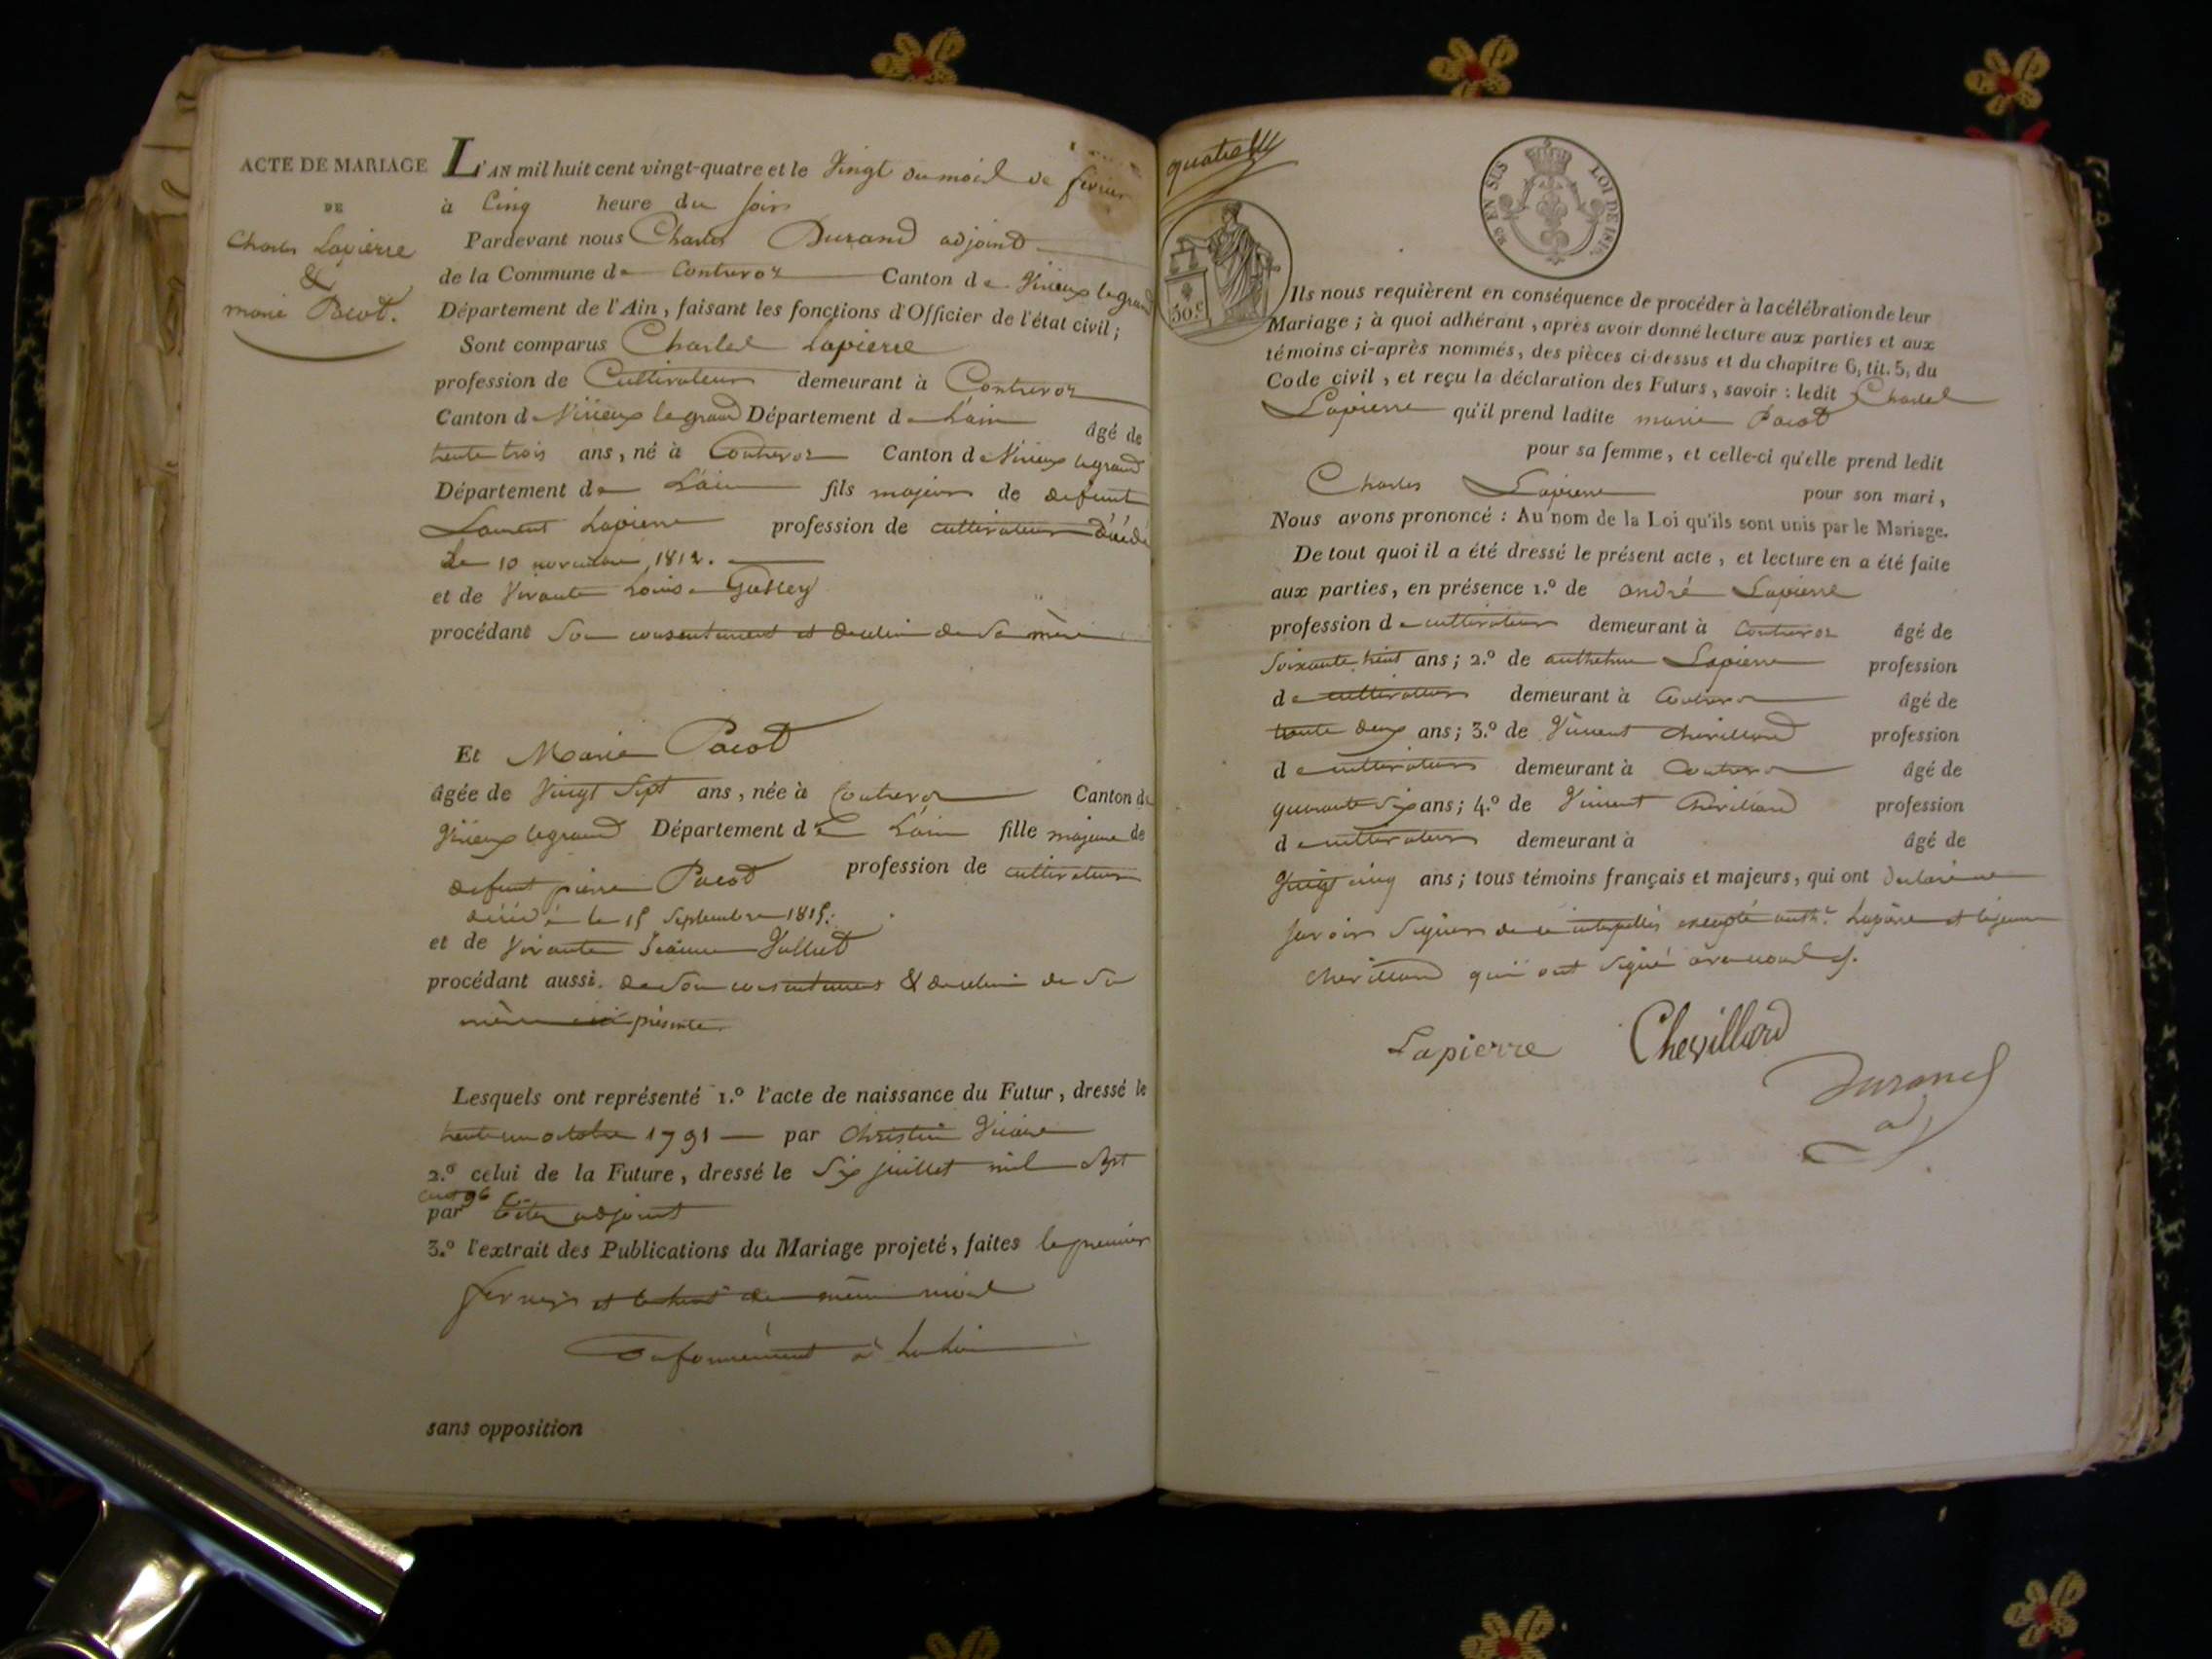 ACTE DE MARIAGE
DE
Charles Lapierre
&
marie Pacot.
L'AN mil huit cent vingt-quatre et le Vingt du mois de fevrier
à Cinq heure du soir
Pardevant nous Charles Durand adjoint
de la Commune de Contrevoz Canton de Virieux legrand
Département de l'Ain, faisant les fonctions d'Officier de l'état civil;
Sont comparus Charles Lapierre
profession de Cultivateur demeurant à Contrevoz
Canton de Virieux legrand Département de L'ain âgé de
trente trois ans, né à Contrevoz Canton de Virieux legrand
Département de L'ain fils majeur de defunt
Laurent Lapierre profession de cultivateur décédé
le 10 novembre 1812.
et de Vivante Louise
procédant
Et Marie Pacot
âgée de Vingt Sept ans, née à Contrevoz Canton de
Virieux legrand Département de L'ain fille majeure de
defunt pierre Pacot profession de cultivateur
décédé le 15 Septembre 1815.
et de Vivante Jeanne Vulliet
procédant aussi de son consentement & de celui de sa
mère ici présente.
Lesquels ont représenté 1.º l'acte de naissance du Futur, dressé le
trente un octobre 1791 par Christin Vicaire
2.º celui de la Future, dressé le Six juillet mil Sept
cent 96
par adjoint
3.º l'extrait des Publications du Mariage projeté, faites le premier
fevrier et le huit du même mois
Conformément à La Loi
sans opposition
quatre
EN SUS LOI DE
50.c
Ils nous requièrent en conséquence de procéder à la célébration de leur
Mariage; à quoi adhérant, après avoir donné lecture aux parties et aux
témoins ci-après nommés, des pièces ci-dessus et du chapitre 6, tit. 5, du
Code civil, et reçu la déclaration des Futurs, savoir : ledit Charles
Lapierre qu'il prend ladite marie Pacot
pour sa femme, et celle-ci qu'elle prend ledit
Charles Lapierre pour son mari,
Nous avons prononcé : Au nom de la Loi qu'ils sont unis par le Mariage.
De tout quoi il a été dressé le présent acte, et lecture en a été faite
aux parties, en présence 1.º de andré Lapierre
profession de cultivateur demeurant à Contrevoz âgé de
Soixante huit ans; 2.º de anthelme Lapierre profession
de cultivateur demeurant à Contrevoz âgé de
trente deux ans; 3.º de Vincent Chevillard profession
de cultivateur demeurant à Contrevoz âgé de
quarante Six ans; 4.º de Vincent Chevillard profession
de cultivateur demeurant à âgé de
Vingt cinq ans; tous témoins français et majeurs, qui ont declaré ne
savoir Signer de ce interpellés excepté anth.e Lapierre et lejeune
Chevillard qui ont signé avec nous
Lapierre Chevillard
Durand
adj